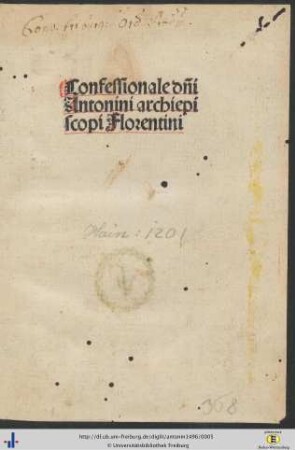 Confessionale dñi
Antonini archiepi
scopi Florentini
Hain: 1201
368
http://dl.ub.uni-freiburg.de/diglit/antonin1496/0005
© Universitätsbibliothek Freiburg